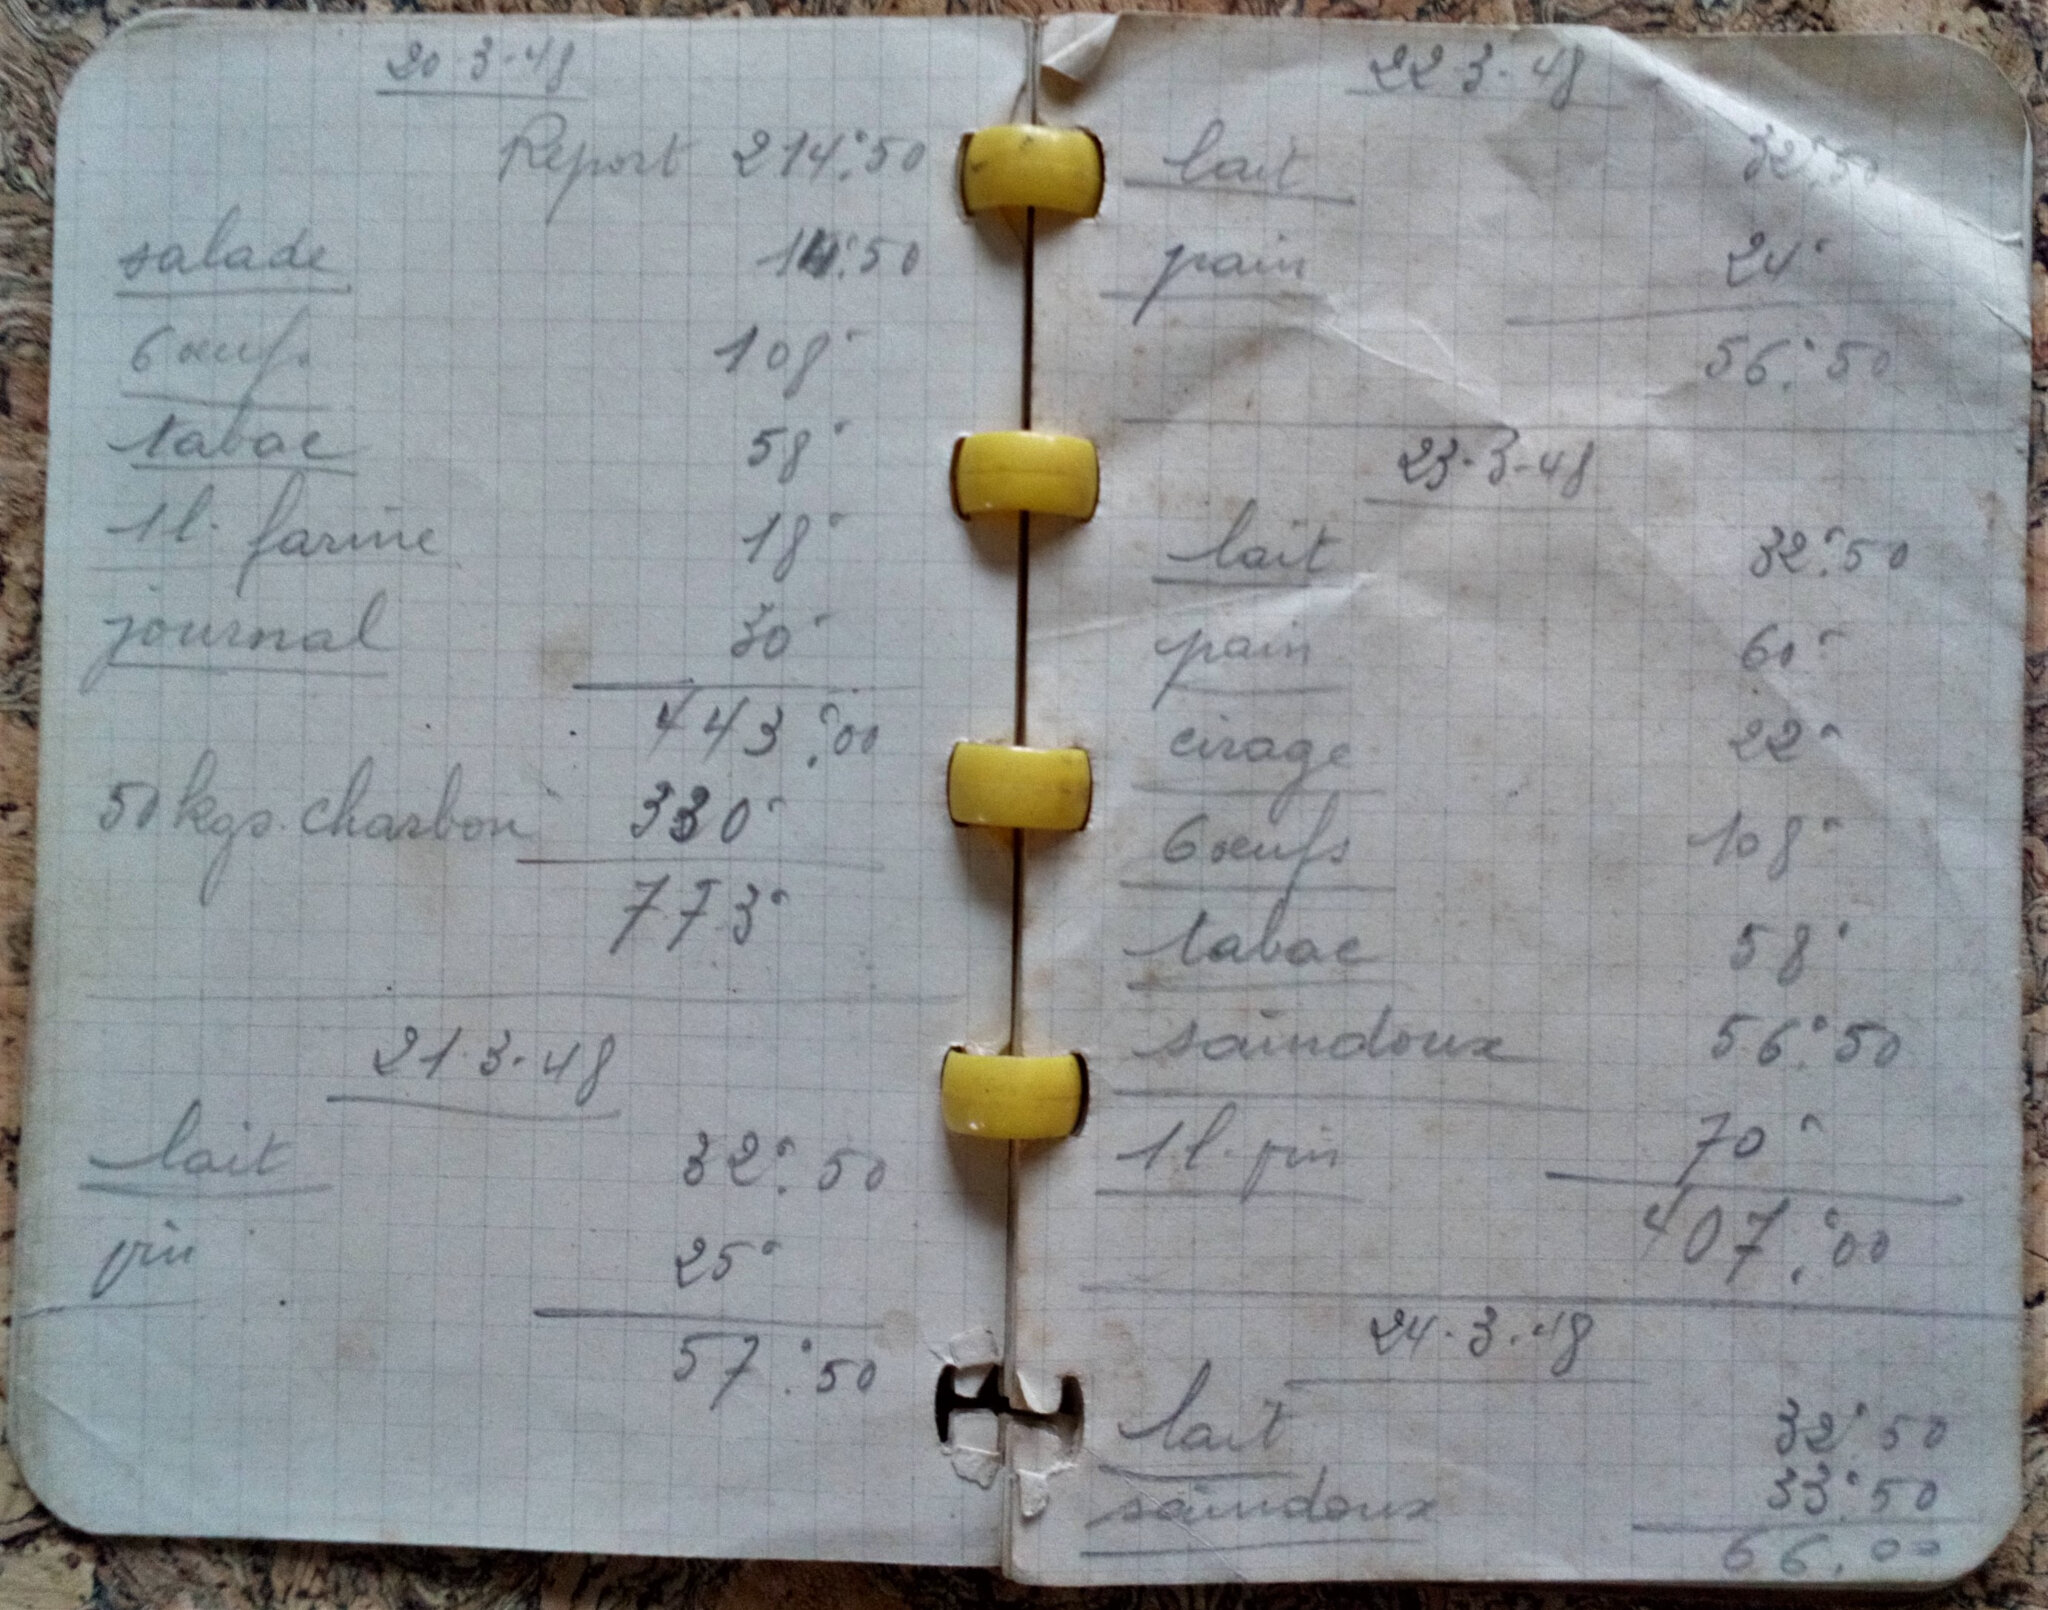 20-3-48
Report 214°.50
salade 14°.50
6 œufs 108°
tabac 58°
1 l. farine 18°
journal 30°
443°.00
50 kgs. charbon 330°
773°
21-3-48
lait 32°.50
vin 25°
57°.50
22-3-48
lait 32°.50
pain 24°
56°.50
23-3-48
lait 32°.50
pain 60°
cirage 22°
6 œufs 108°
tabac 58°
saindoux 56°.50
1 l. vin 70°
407°.00
24-3-48
lait 32°.50
saindoux 33°.50
66.00